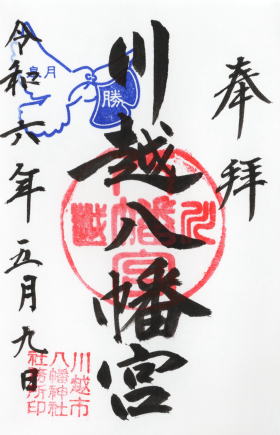 奉拝
川越八幡宮
令和六年五月九日
川越
八幡宮
川越市
八幡神社
社務所印
勝